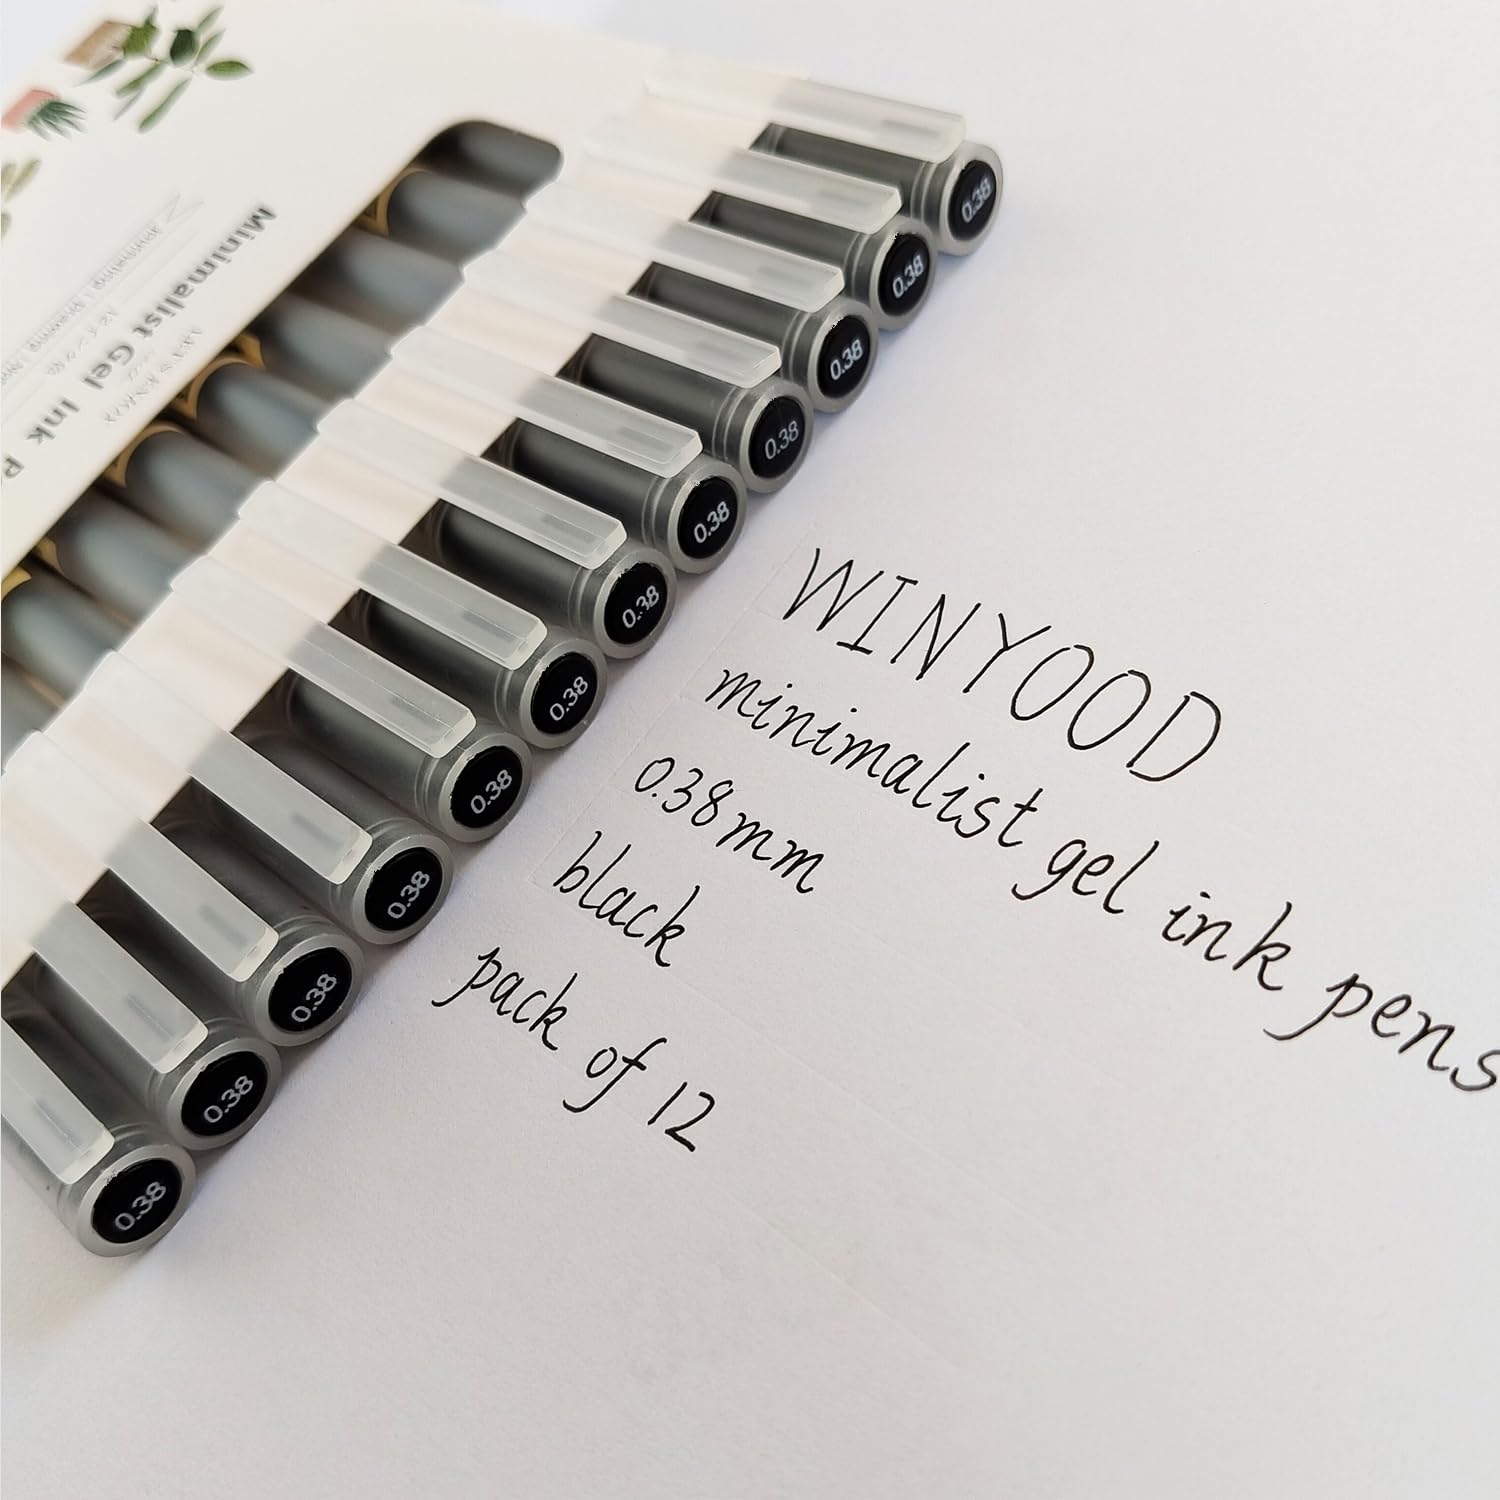 Minimalist Gel Ink P
0.38
0.38
0.38
0.38
0.38
0.38
0.38
0.38
0.38
0.38
0.38
0.38
WINYOOD
minimalist gel ink pens
0.38mm
black
pack of 12